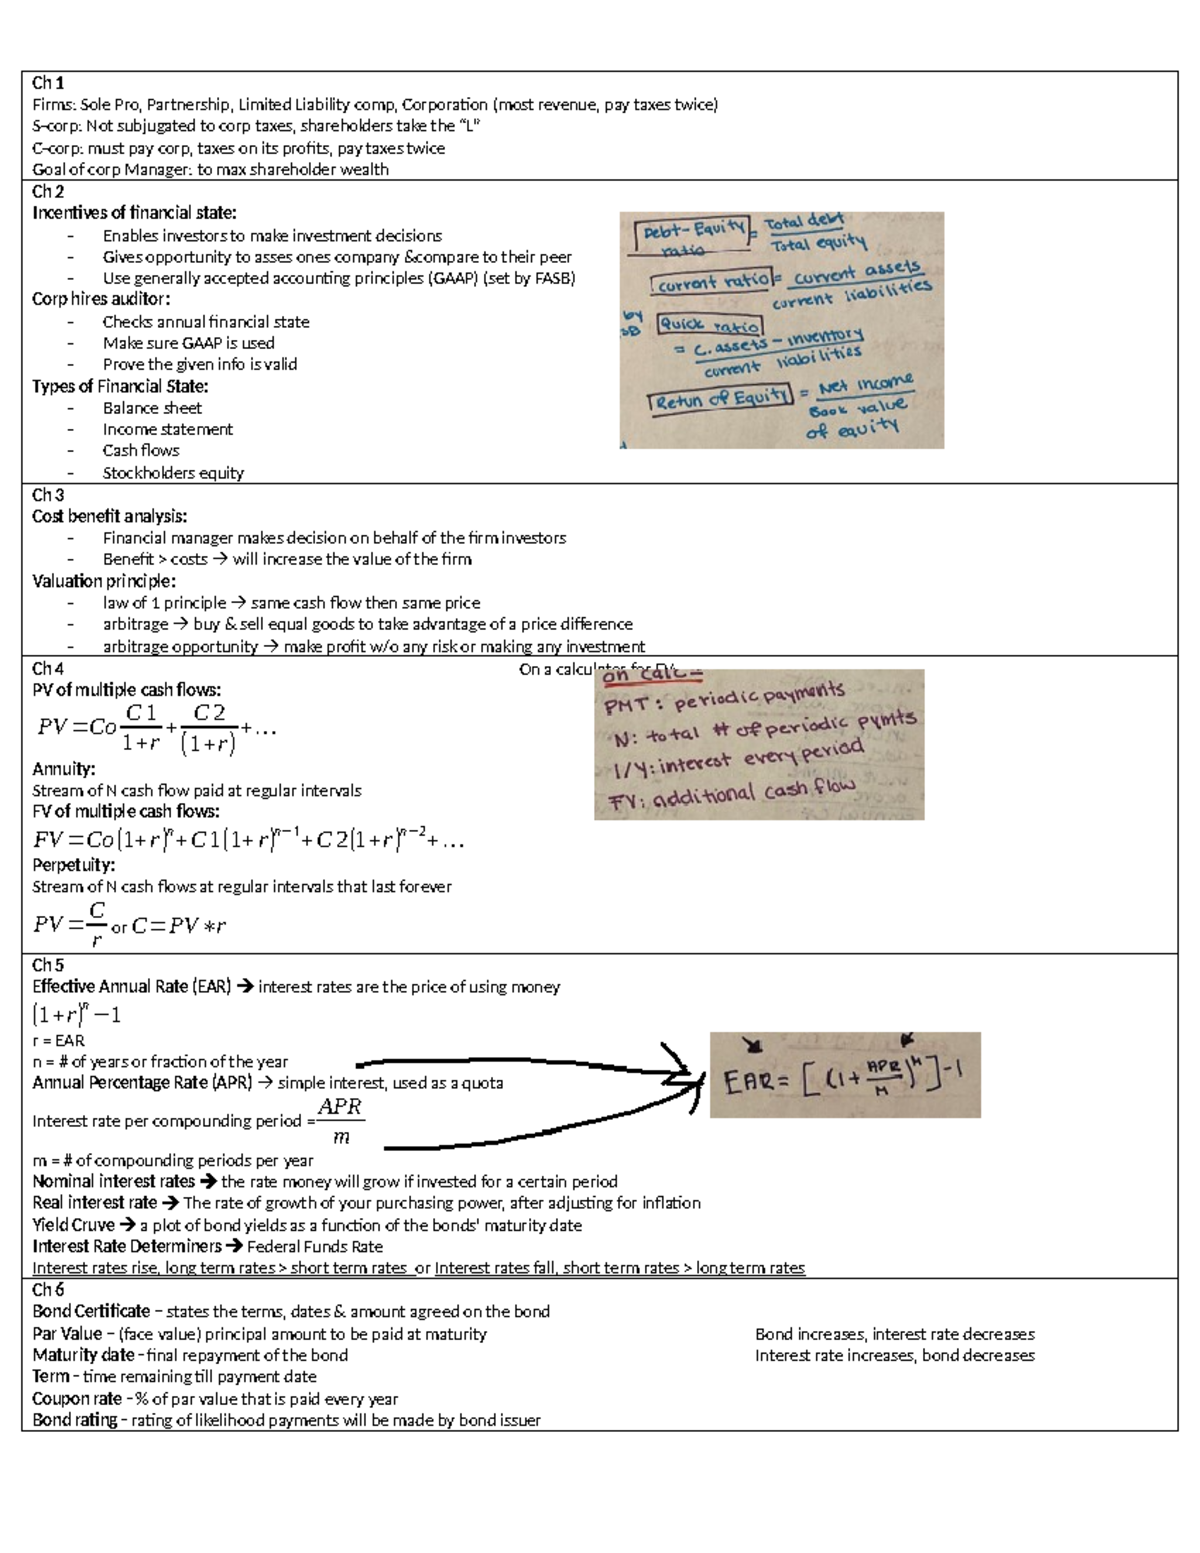 Ch 1
Firms: Sole Pro, Partnership, Limited Liability comp, Corporation (most revenue, pay taxes twice)
S-corp: Not subjugated to corp taxes, shareholders take the “L”
C-corp: must pay corp, taxes on its profits, pay taxes twice
Goal of corp Manager: to max shareholder wealth
Ch 2
Incentives of financial state:
- Enables investors to make investment decisions
- Gives opportunity to asses ones company &compare to their peer
- Use generally accepted accounting principles (GAAP) (set by FASB)
Corp hires auditor:
- Checks annual financial state
- Make sure GAAP is used
- Prove the given info is valid
Types of Financial State:
- Balance sheet
- Income statement
- Cash flows
- Stockholders equity
Debt-Equity ratio = Total debt / Total equity
current ratio = current assets / current liabilities
by
Quick ratio
= C. assets - inventory / current liabilities
Retun of Equity = Net income / Book value of equity
Ch 3
Cost benefit analysis:
- Financial manager makes decision on behalf of the firm investors
- Benefit > costs → will increase the value of the firm
Valuation principle:
- law of 1 principle → same cash flow then same price
- arbitrage → buy & sell equal goods to take advantage of a price difference
- arbitrage opportunity → make profit w/o any risk or making any investment
Ch 4
On a calculator for FV
PV of multiple cash flows:
PV = Co C 1 / 1+r + C 2 / (1+r) + …
Annuity:
Stream of N cash flow paid at regular intervals
FV of multiple cash flows:
FV = Co(1+r)^n + C 1(1+r)^n−1 + C 2(1+r)^n−2 + …
Perpetuity:
Stream of N cash flows at regular intervals that last forever
PV = C / r or C = PV * r
on calc =
PMT: periodic payments
N: total # of periodic pymts
I/Y: interest every period
FV: additional cash flow
Ch 5
Effective Annual Rate (EAR) → interest rates are the price of using money
(1+r)^n − 1
r = EAR
n = # of years or fraction of the year
Annual Percentage Rate (APR) → simple interest, used as a quota
Interest rate per compounding period = APR / m
m = # of compounding periods per year
EAR = [ (1 + APR / M)^M ] - 1
Nominal interest rates → the rate money will grow if invested for a certain period
Real interest rate → The rate of growth of your purchasing power, after adjusting for inflation
Yield Cruve → a plot of bond yields as a function of the bonds' maturity date
Interest Rate Determiners → Federal Funds Rate
Interest rates rise, long term rates > short term rates or Interest rates fall, short term rates > long term rates
Ch 6
Bond Certificate – states the terms, dates & amount agreed on the bond
Par Value – (face value) principal amount to be paid at maturity
Bond increases, interest rate decreases
Maturity date - final repayment of the bond
Interest rate increases, bond decreases
Term - time remaining till payment date
Coupon rate - % of par value that is paid every year
Bond rating - rating of likelihood payments will be made by bond issuer